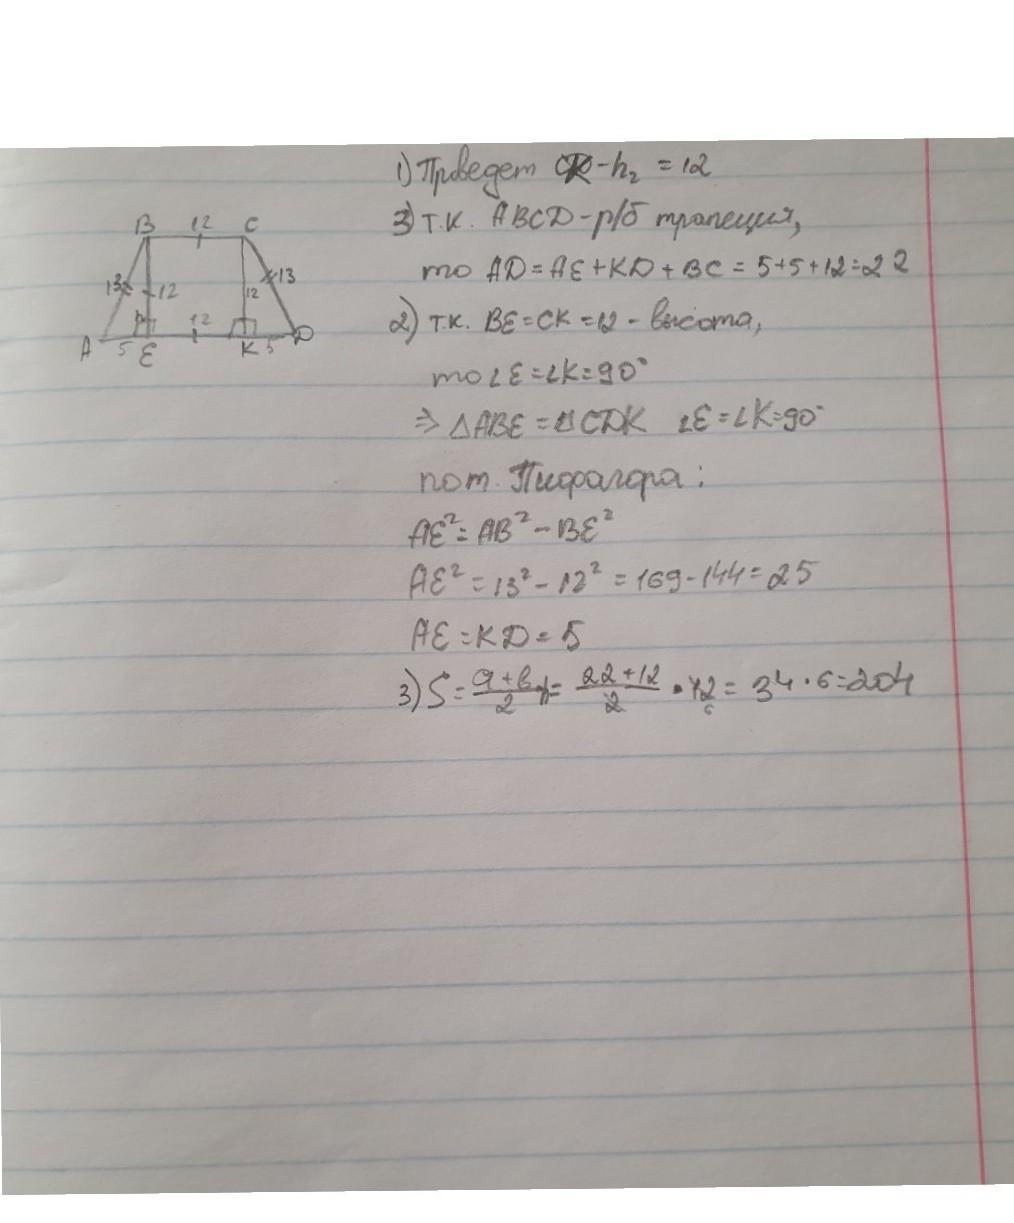 B 12 C
13 12 12 13
12
A 5 E K 5 D
1) Проведем CK - h₂ = 12
3) т.к. ABCD - р/б трапеция,
то AD = AE + KD + BC = 5+5+12=22
2) т.к. BE = CK = 12 - высота,
то ∠E = ∠K = 90°
⇒ △ABE = △CDK ∠E = ∠K = 90°
по т. Пифагора:
AE² = AB² - BE²
AE² = 13² - 12² = 169 - 144 = 25
AE = KD = 5
3) S = (a+b)/2 h = (22+12)/2 • 12 = 34 · 6 = 204